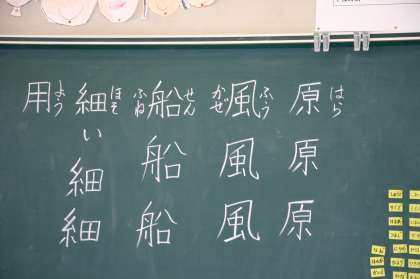 原 はら
原
原
風 ふう かぜ
風
風
船 せん ふね
船
船
細い ほそ
細
細
用 よう